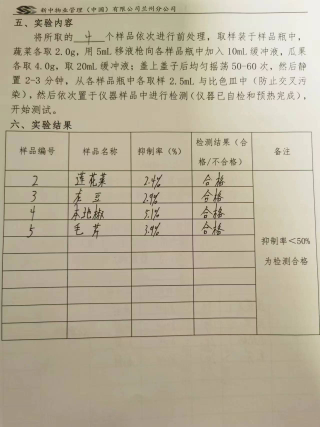 新中物业管理（中国）有限公司兰州分公司
五、实验内容
将所取的 4 个样品依次进行前处理，取样装于样品瓶中，
蔬菜各取2.0g，用5mL移液枪向各样品瓶中加入10mL缓冲液，瓜果
各取4.0g，取20mL缓冲液；盖上盖子后均匀摇荡50-60次，然后静
置2-3分钟，从各样品瓶中各取样2.5mL与比色皿中（防止交叉污
染），然后依次置于仪器样品中进行检测（仪器已自检和预热完成），
开始测试。
六、实验结果
样品编号 样品名称 抑制率（%） 检测结果（合格/不合格） 备注
2 莲花菜 2.4% 合格
3 豆 2.9% 合格
4 本地椒 5.1% 合格
5 毛芹 3.9% 合格
抑制率<50%
为检测合格